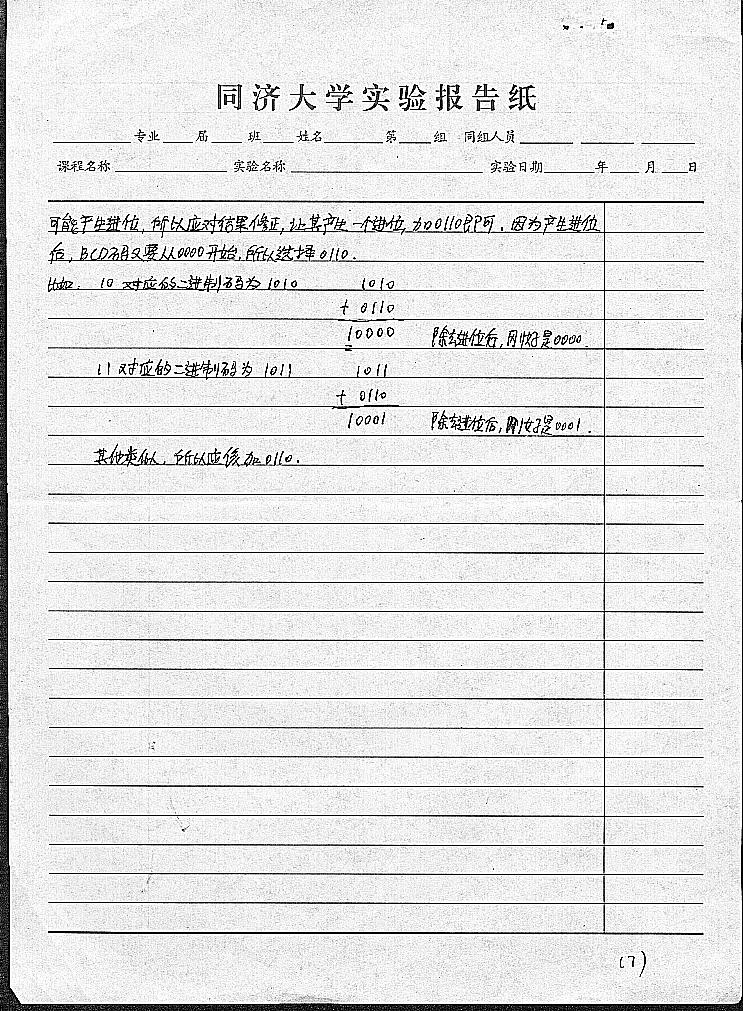 同济大学实验报告纸
专业 届 班 姓名 第 组 同组人员
课程名称 实验名称 实验日期 年 月 日
可能产生进位,所以应对结果修正,让其产生一个进位,加0110即可.因为产生进位
后,BCD码又要从0000开始,所以选择0110.
比如: 10 对应的二进制码为 1010 1010
+ 0110
10000 除去进位后,刚好是0000.
11 对应的二进制码为 1011 1011
+ 0110
10001 除去进位后,刚好是0001.
其他类似,所以应该加0110.
(7)